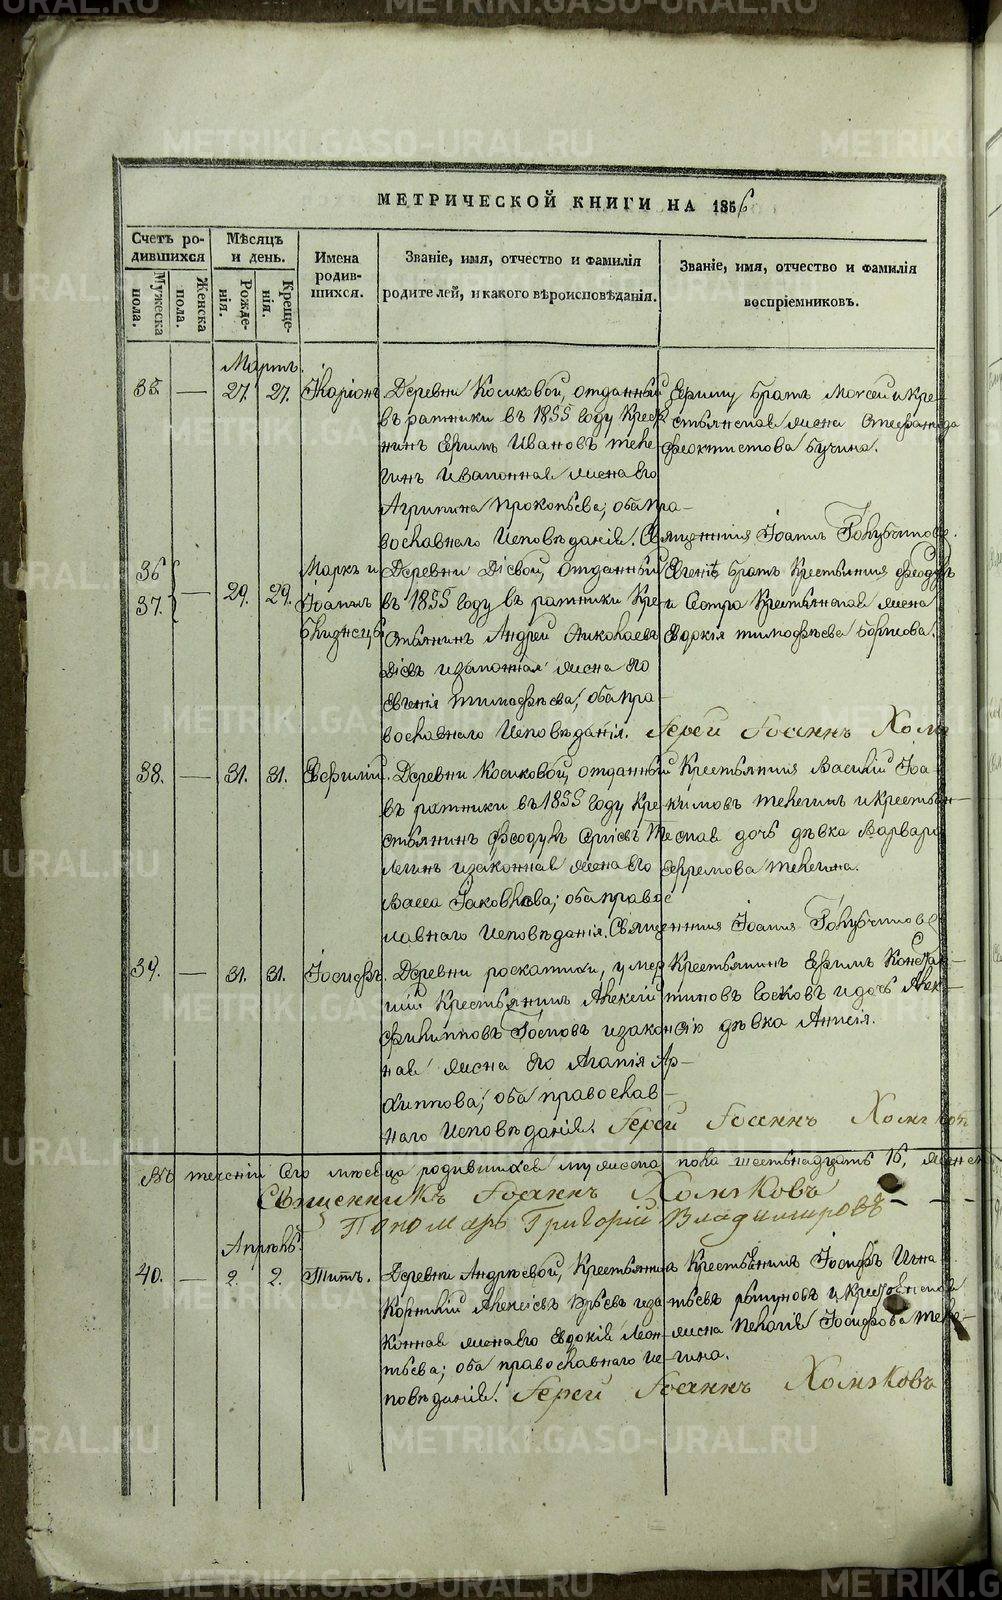 METRIKI.GASO-URAL.RU
МЕТРИЧЕСКОЙ КНИГИ НА 1856
Счетъ ро-
дившихся
Мужеска пола.
Женска пола.
Мѣсяцъ
и день.
Рожде-
нія.
Креще-
нія.
Имена
родив-
шихся.
Званіе, имя, отчество и фамилія
родителей, и какого вѣроисповѣданія.
Званіе, имя, отчество и фамилія
воспріемниковъ.
Мартъ.
35 — 27. 27. Иларіонъ Деревни Косиковой, отданный
въ ратники въ 1855 году Крестья-
нинъ Ефимъ Ивановъ Теле-
гинъ и законная жена его
Агрипина Прокопьева; оба пра-
вославнаго исповѣданія.
Ефиму братъ Моѵсей и кре-
стьянская жена Стефанида
Феоктистова Бучина.
Священникъ Іоаннъ
36
37. — 29. 29. Маркъ и
Іоаннъ
близнецы
Деревни Діевой, отданный
въ 1855 году въ ратники Кре-
стьянинъ Андрей Николаевъ
Діевъ и законная жена его
Евгенія Тимофѣева; оба пра-
вославнаго исповѣданія.
Евгеніѣ братъ Крестьянинъ Феодулъ
и сестра Крестьянская жена
Евдокія Тимофѣева
Іерей Іоаннъ Холм
38. — 31. 31. Евфимій. Деревни Косиковой, отданный
въ ратники въ 1855 году Кре-
стьянинъ Феодулъ Сергіевъ Те-
легинъ и законная жена его
Васса Іаковлева; оба правос
лавнаго исповѣданія.
Крестьянинъ Василій Іоа-
кимовъ Телегинъ и крестьян-
ская дочь дѣвка Варвара
Ефремова Телегина.
Священникъ Іоаннъ
39. — 31. 31. Іосифъ. Деревни Роскатихи, умер
шій Крестьянинъ Алексій
Филипповъ и закон
ная жена его Агапія Ар-
хиппова; оба православ-
наго исповѣданія.
Крестьянинъ Ефимъ Констан-
тиновъ и дочь Алек-
сію дѣвка Анисія.
Іерей Іоаннъ Холмъ
Въ теченіи сего мѣсяца родившихся мужеска пола шестьнадцать 16, женск
Священникъ Іоаннъ Холмъковъ
Пономарь Григорій Владимировъ — — —
Апрѣль.
40. — 2. 2. Титъ. Деревни Андрюевой, Крестьянинъ
Корнилій Алексіевъ и за-
конная жена его Евдокія Леон-
тьева; оба православнаго ис-
повѣданія.
Крестьянинъ Іосифъ Игна
тьевъ и Крестьянская
жена Пелагія Іосифова Теле-
гина.
Іерей Іоаннъ Холмъковъ